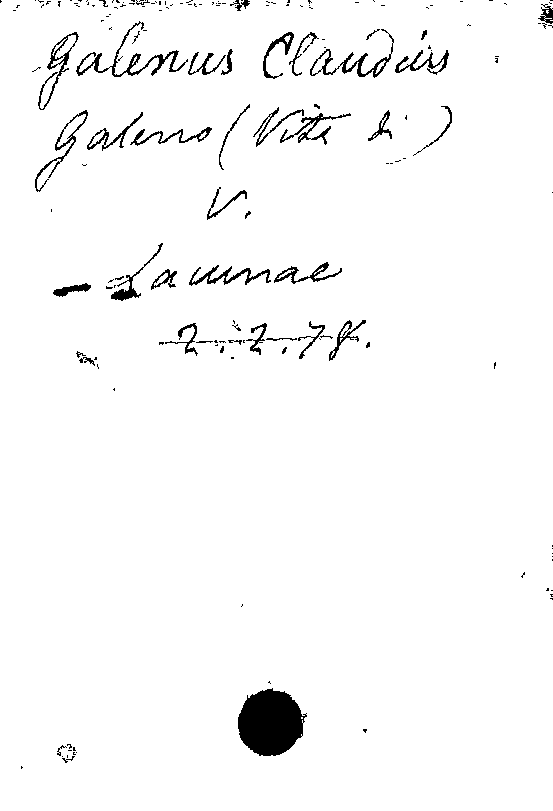 Galenus Claudius
Galeno (Vita di)
V.
- Lacunae
2.2.78.